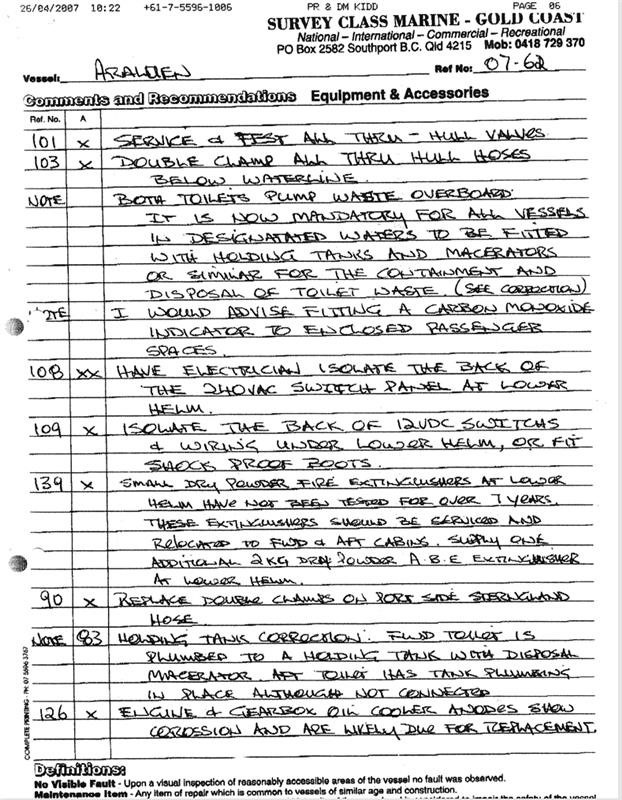 26/04/2007 10:22 +61-7-5596-1006 PR & DM KIDD PAGE 06
SURVEY CLASS MARINE - GOLD COAST
National - International - Commercial - Recreational
PO Box 2582 Southport B.C. Qld 4215 Mob: 0418 729 370
Vessel: ARALUEN Ref No: 07-62
Comments and Recommendations Equipment & Accessories
Ref. No. A
101 X SERVICE & TEST ALL THRU-HULL VALVES
103 X DOUBLE CLAMP ALL THRU HULL HOSES
BELOW WATERLINE.
NOTE BOTH TOILETS PUMP WASTE OVERBOARD.
IT IS NOW MANDATORY FOR ALL VESSELS
IN DESIGNATATED WATERS TO BE FITTED
WITH HOLDING TANKS AND MACERATORS
OR SIMILAR FOR THE CONTAINMENT AND
DISPOSAL OF TOILET WASTE. (SEE CORRECTION)
TE I WOULD ADVISE FITTING A CARBON MONOXIDE
INDICATOR TO ENCLOSED PASSENGER
SPACES.
108 XX HAVE ELECTRICIAN ISOLATE THE BACK OF
THE 240VAC SWITCH PANEL AT LOWER
HELM.
109 X ISOLATE THE BACK OF 12VDC SWITCHS
& WIRING UNDER LOWER HELM, OR FIT
SHOCK PROOF BOOTS.
139 X SMALL DRY POWDER FIRE EXTINGUISHERS AT LOWER
HELM HAVE NOT BEEN TESTED FOR OVER 7 YEARS.
THESE EXTINGUISHERS SHOULD BE SERVICED AND
RELOCATED TO FWD & AFT CABINS. SUPPLY ONE
ADDITIONAL 2KG DRY POWDER A.B.E EXTINGUISHER
AT LOWER HELM.
90 X REPLACE DOUBLE CLAMPS ON PORT SIDE STERNGLAND
HOSE
NOTE 83 HOLDING TANK CORRECTION. FWD TOILET IS
PLUMBED TO A HOLDING TANK WITH DISPOSAL
MACERATOR. AFT TOILET HAS TANK PLUMBING
IN PLACE ALTHOUGH NOT CONNECTED
126 X ENGINE & GEARBOX OIL COOLER ANODES SHOW
CORROSION AND ARE LIKELY DUE FOR REPLACEMENT.
COMPLETE PRINTING - PH: 07 5596 3767
Definitions:
No Visible Fault - Upon a visual inspection of reasonably accessible areas of the vessel no fault was observed.
Maintenance Item - Any item of repair which is common to vessels of similar age and construction.